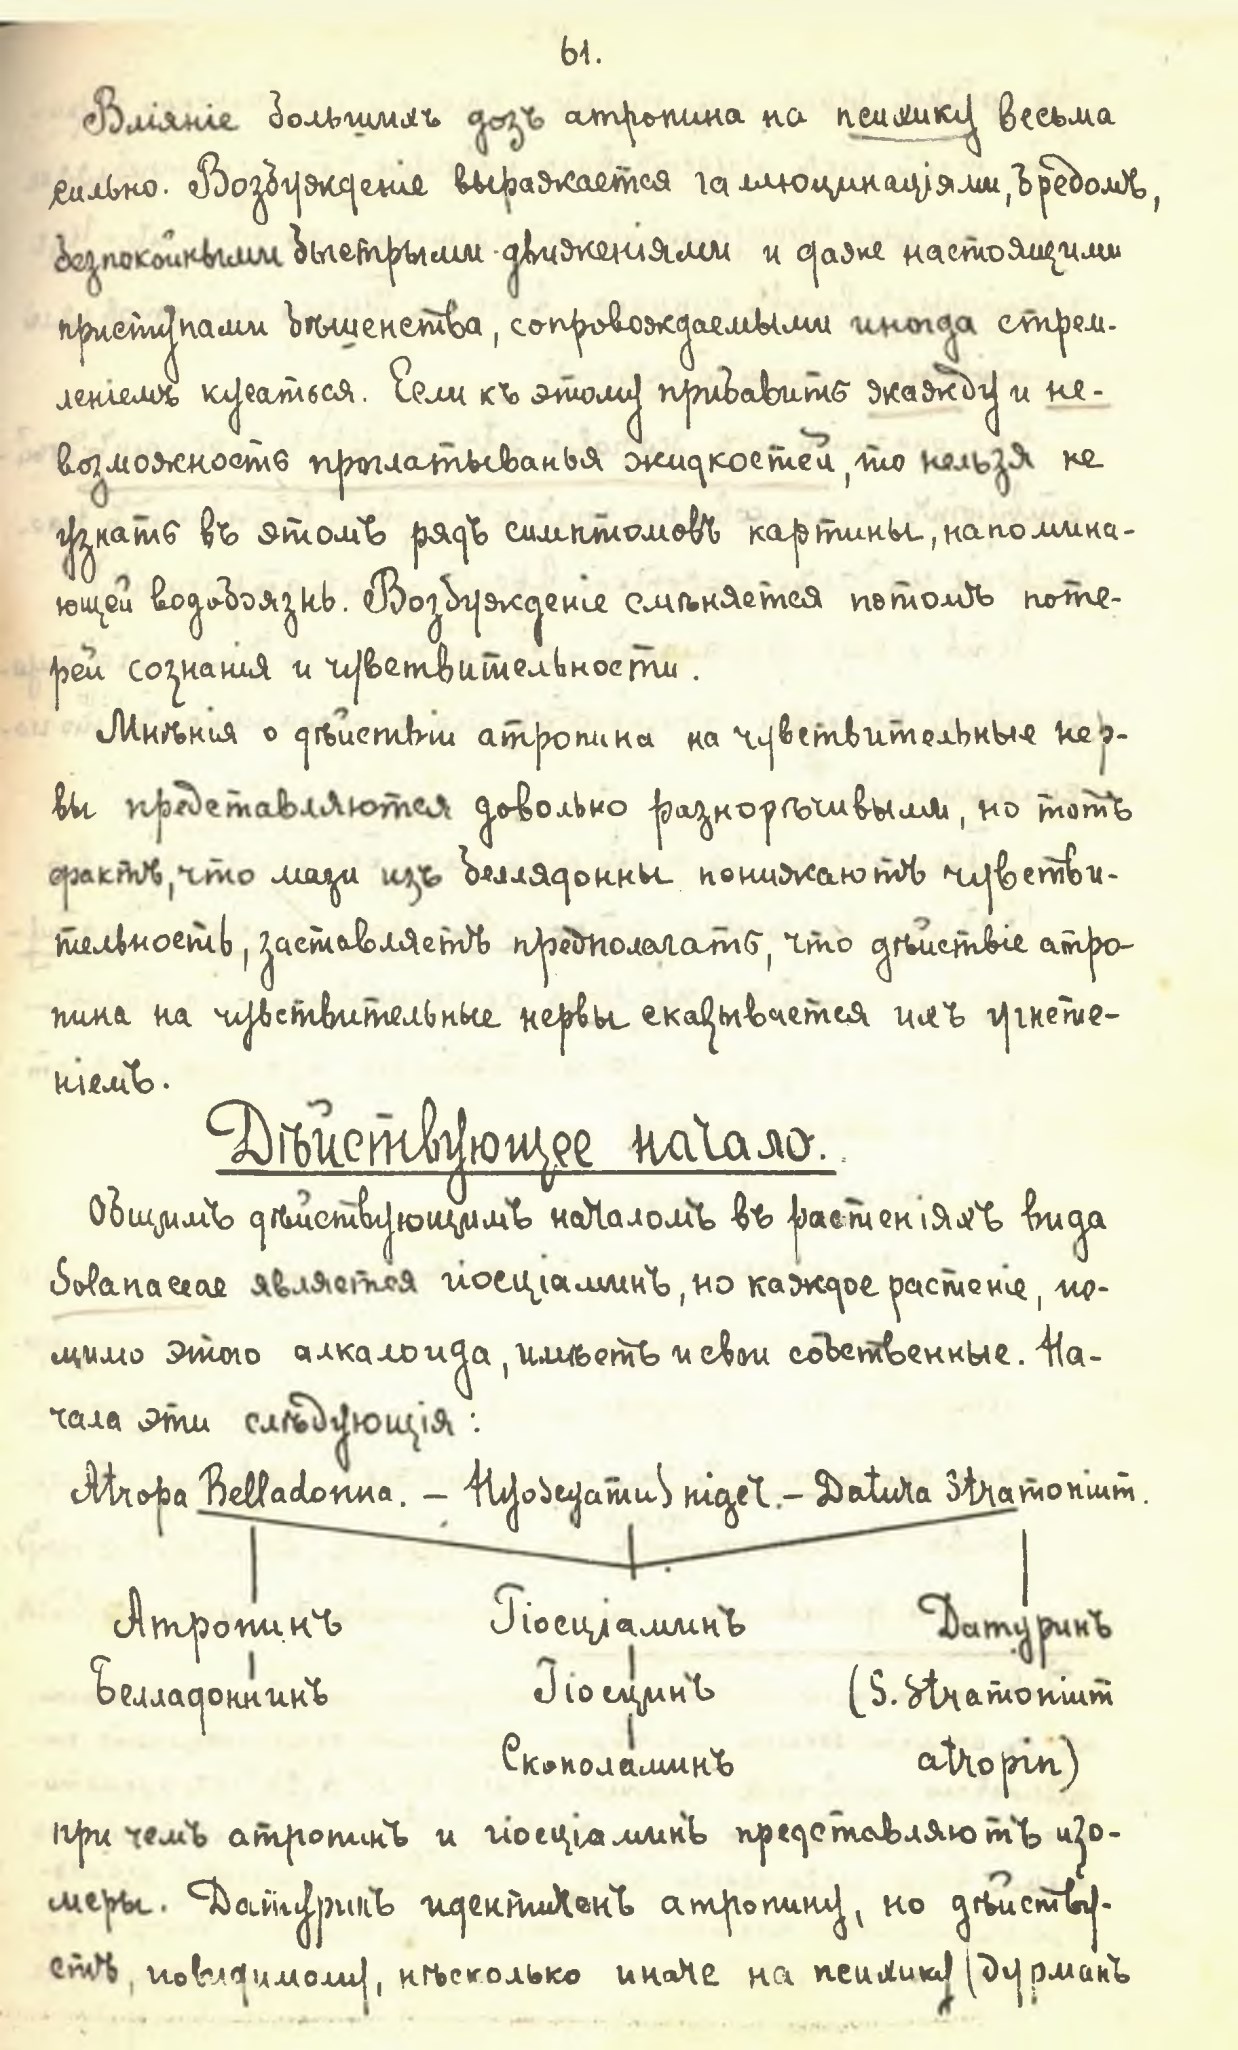 61.
Вліяніе большихъ дозъ атропина на психику весьма
сильно. Возбужденіе выражается галлюцинаціями, бредомъ,
безпокойными быстрыми движеніями и даже настоящими
приступами бѣшенства, сопровождаемыми иногда стрем-
леніемъ кусаться. Если къ этому прибавить жажду и не-
возможность проглатыванья жидкостей, то нельзя не
узнать въ этомъ рядѣ симптомовъ картины, напомина-
ющей водобоязнь. Возбужденіе смѣняется потомъ поте-
рей сознанія и чувствительности.
Мнѣнія о дѣйствіи атропина на чувствительные нер-
вы представляются довольно разнорѣчивыми, но тотъ
фактъ, что мази изъ беллядонны понижаютъ чувстви-
тельность, заставляетъ предполагать, что дѣйствіе атро-
пина на чувствительные нервы сказывается ихъ угнете-
ніемъ.
Дѣйствующее начало.
Общимъ дѣйствующимъ началомъ въ растеніяхъ вида
Solanaceae является гіосціаминъ, но каждое растеніе, по-
мимо этого алкалоида, имѣетъ и свои собственные. На-
чала эти слѣдующія:
Atropa Belladonna. – Hyoscyamus niger. – Datura Stramonium.
Атропинъ Гіосціаминъ Датуринъ
Белладоннинъ Гіосцинъ (S. Stramonium
Скополаминъ atropin)
при чемъ атропинъ и гіосціаминъ представляютъ изо-
меры. Датуринъ идентиченъ атропину, но дѣйству-
етъ, повидимому, нѣсколько иначе на психику (дурманъ